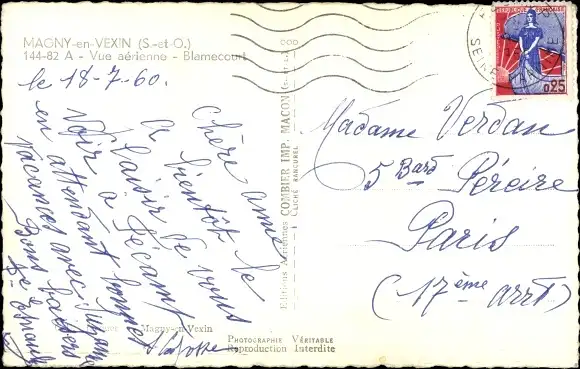 MAGNY-en-VEXIN (S.-et-O.)
144-82 A - Vue aérienne - Blamecourt
le 18-7-60.
Chère amie
A bientôt le
plaisir de vous
voir à
en attendant bonnes
vacances avec
Bons baisers
Editions Aériennes COMBIER IMP. MACON
CLICHÉ RANCUREL
0,25
Madame Verdan
5 Bard Péreire
Paris
(17ème arrt)
Magny-en-Vexin
PHOTOGRAPHIE VÉRITABLE
Reproduction Interdite